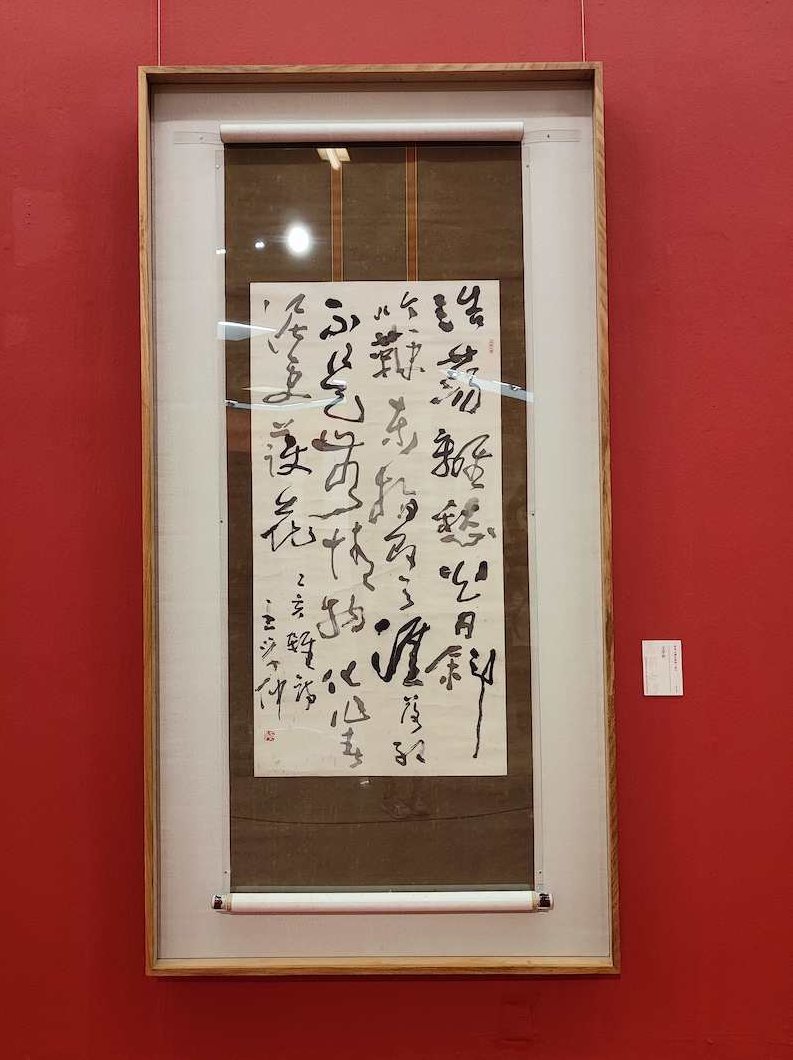 浩蕩離愁白日斜
吟鞭東指即天涯落紅
不是無情物化作春
泥更護花
己亥雜詩